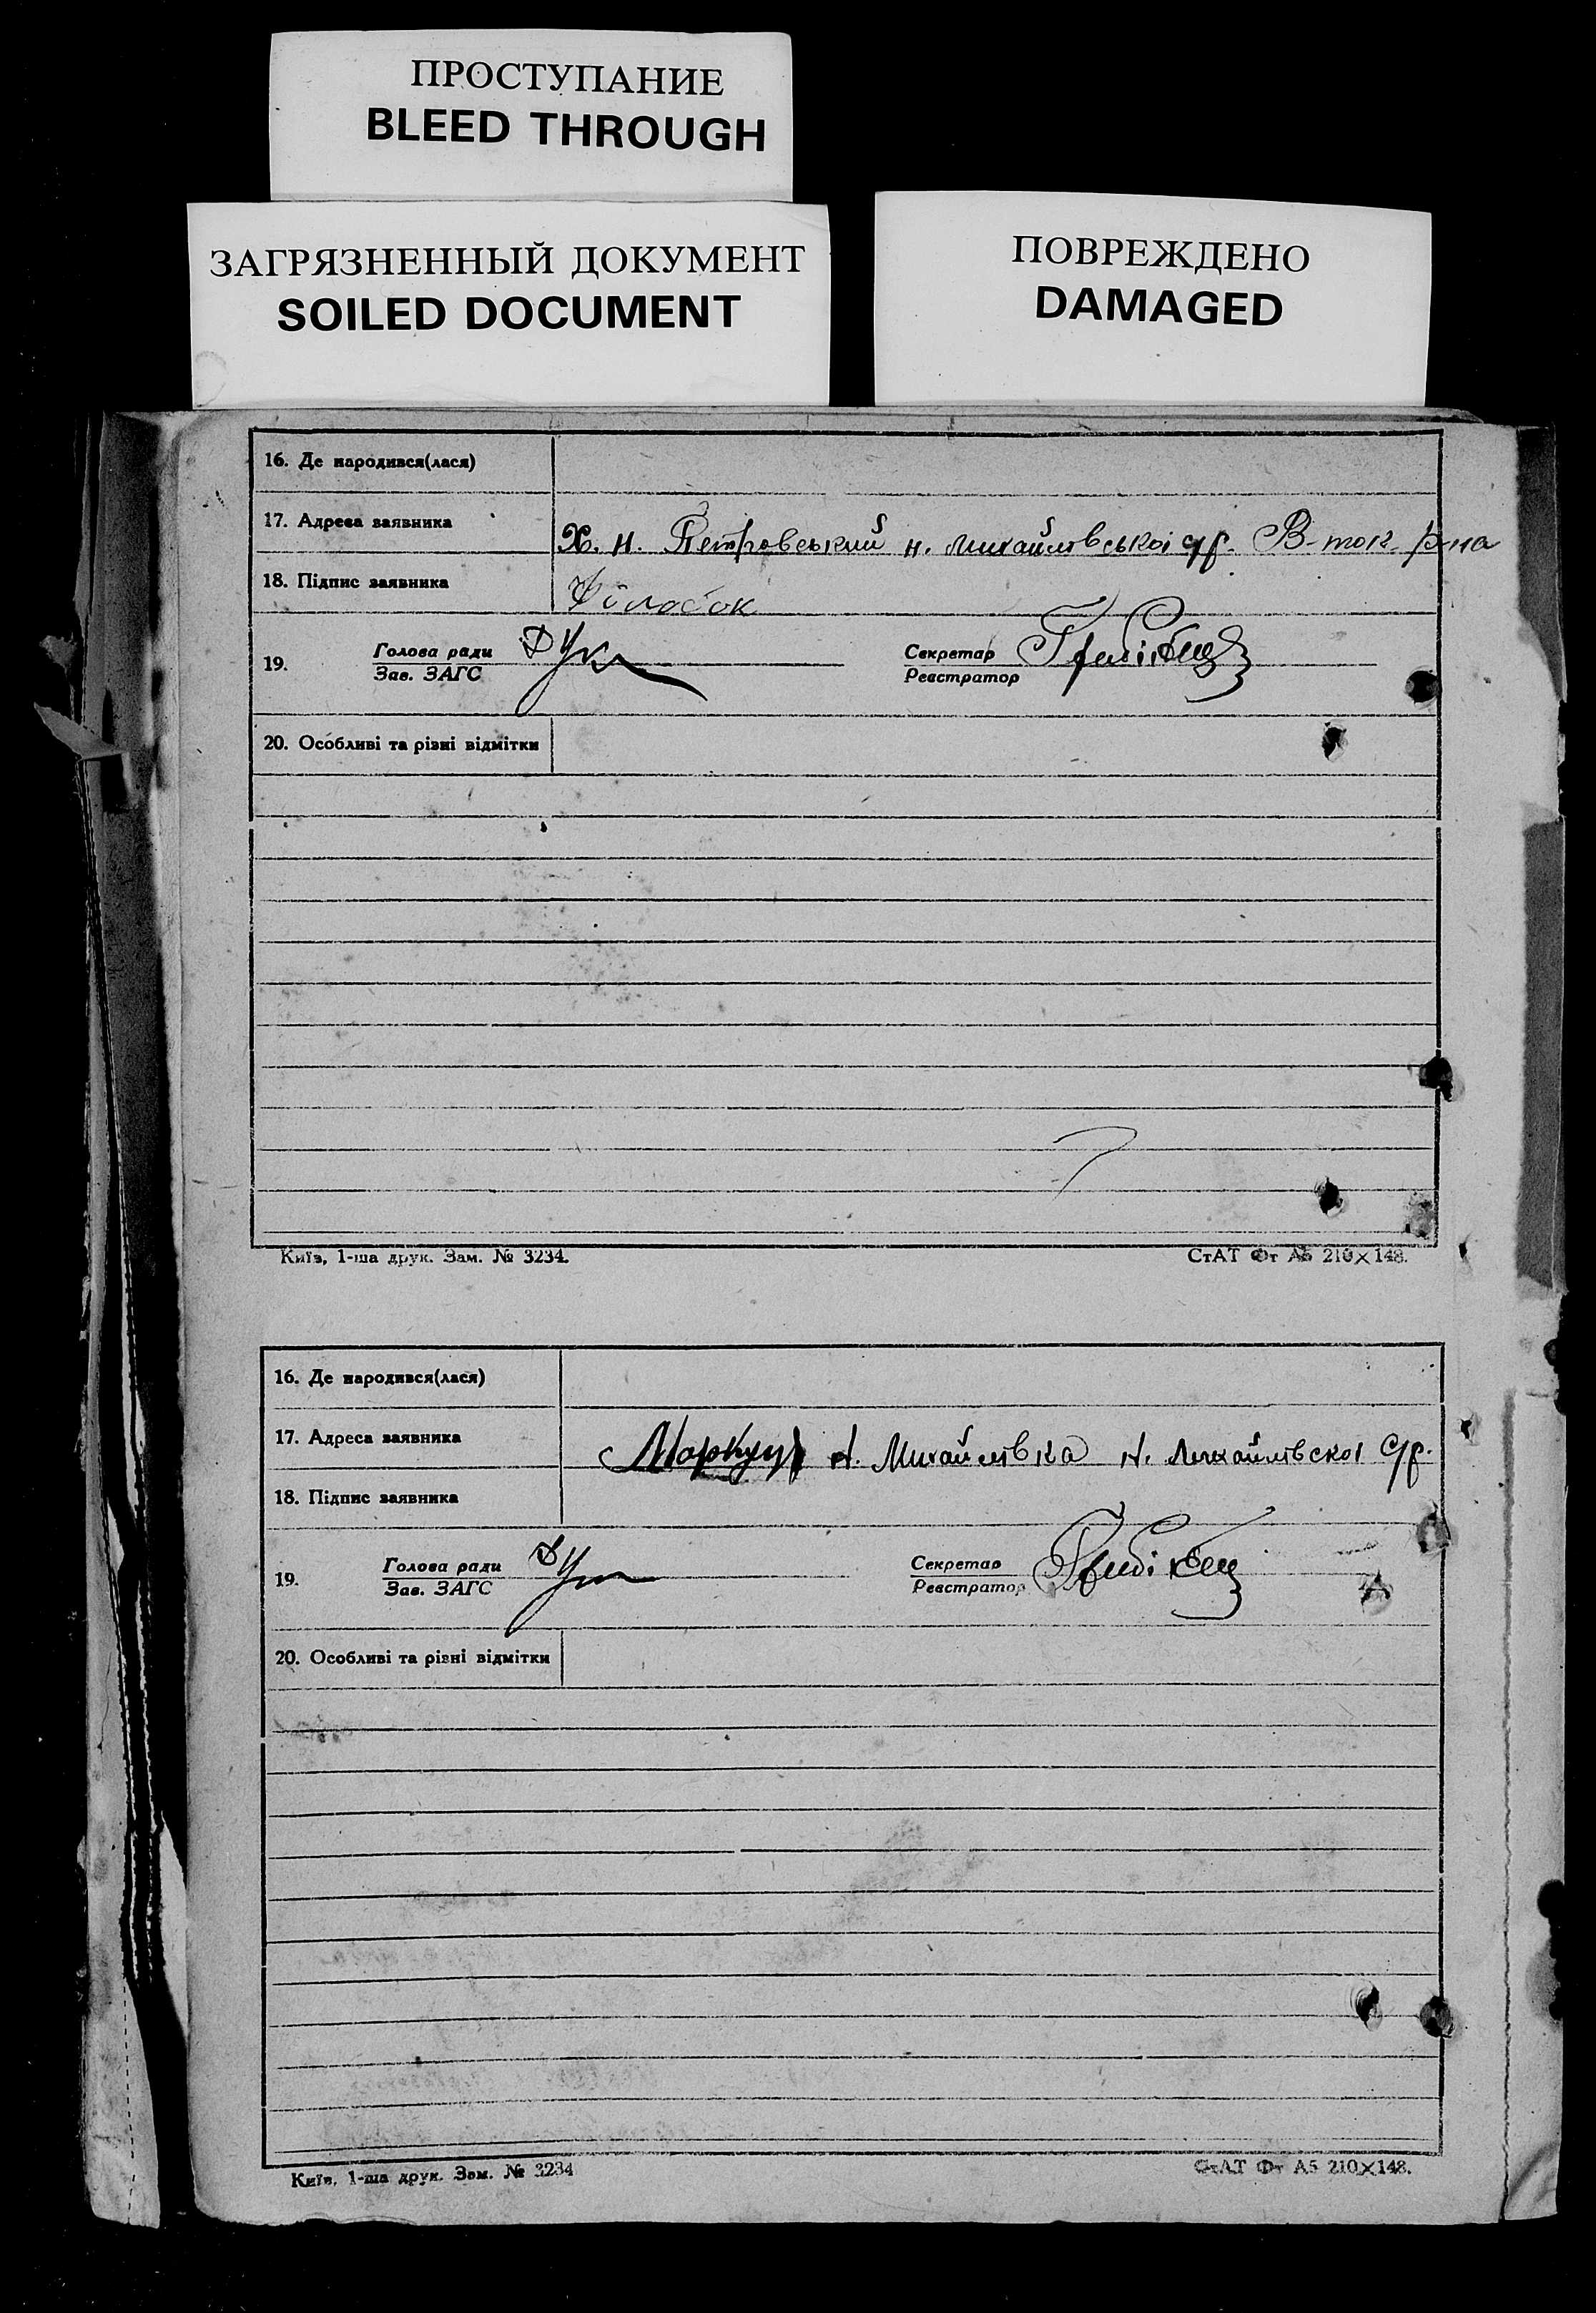 ПРОСТУПАНИЕ
BLEED THROUGH
ЗАГРЯЗНЕННЫЙ ДОКУМЕНТ
SOILED DOCUMENT
ПОВРЕЖДЕНО
DAMAGED
16. Де народився(лася)
17. Адреса заявника Х. Н. Петровський Н. Михайлівської с/р. В-ток. р-на
18. Підпис заявника
19. Голова ради Секретар
Зав. ЗАГС Реєстратор
20. Особливі та різні відмітки
Київ, 1-ша друк. Зам. № 3234. СтАТ Фт А5 210×148.
16. Де народився(лася)
17. Адреса заявника Н. Михайлівка Н. Михайлівскої с/р.
18. Підпис заявника
19. Голова ради Секретар
Зав. ЗАГС Реєстратор
20. Особливі та різні відмітки
Київ, 1-ша друк. Зам. № 3234 СтАТ Фт А5 210×148.